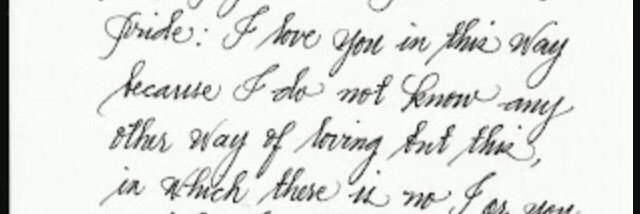 pride: I love you in this way
because I do not know any
other way of loving but this,
in which there is no I or you